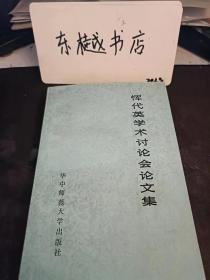 东越书店
恽代英学术讨论会论文集
华中师范大学出版社